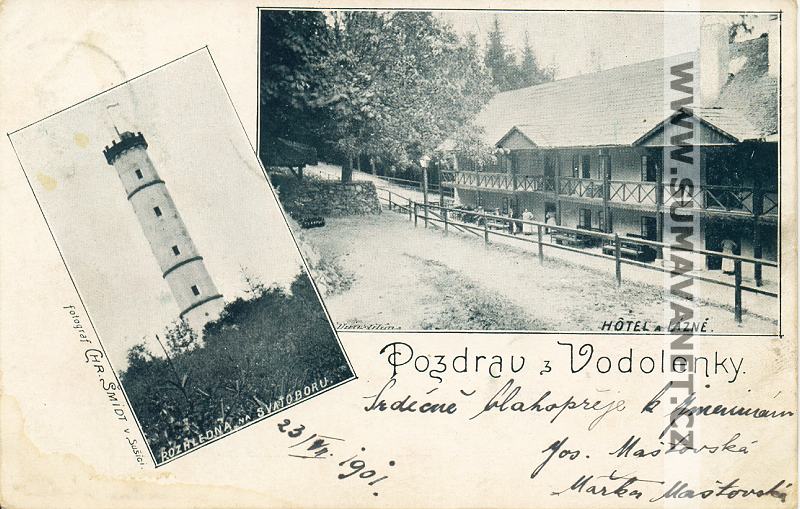 HÔTEL A LÁZNĚ.
ROZHLEDNA NA SVATOBORU.
fotograf CHR. SMIDT v Sušici.
Pozdrav z Vodolenky.
Srdečně blahopřeje k jmeninám
Jos. Maštovská
Mařka Maštovská
23/VII. 1901.
WWW.SUMAVANET.CZ